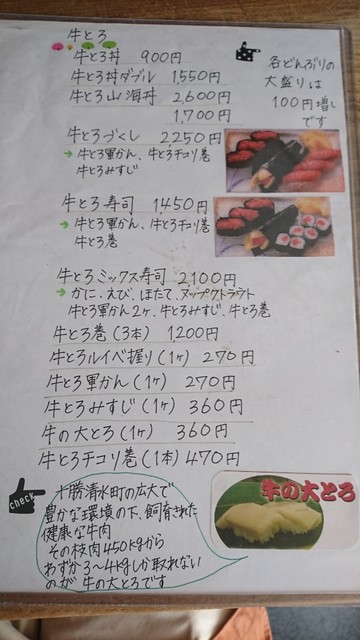 牛とろ
牛とろ丼 900円
牛とろ丼ダブル 1,550円
牛とろ山海丼 2,600円
1,700円
各どんぶりの
大盛りは
100円増し
です
牛とろづくし 2,250円
→ 牛とろ軍かん、牛とろチコリ巻
牛とろみすじ
牛とろ寿司 1,450円
→ 牛とろ軍かん、牛とろチコリ巻
牛とろ巻
牛とろミックス寿司 2,100円
→ かに、えび、ほたて、ヌップクトラウト
牛とろ軍かん2ヶ、牛とろみすじ、牛とろ巻
牛とろ巻(3本) 1,200円
牛とろルイベ握り(1ヶ) 270円
牛とろ軍かん(1ヶ) 270円
牛とろみすじ(1ヶ) 360円
牛の大とろ(1ヶ) 360円
牛とろチコリ巻(1本) 470円
check
十勝清水町の広大で
豊かな環境の下、飼育された
健康な牛肉
その枝肉450kgから
わずか3~4kgしか取れない
のが 牛の大とろです
牛の大とろ